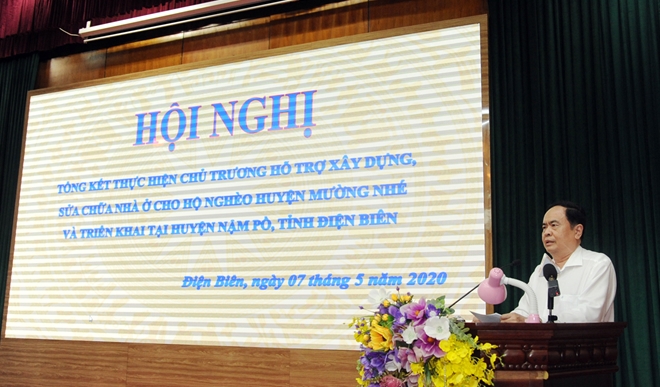 HỘI NGHỊ
TỔNG KẾT THỰC HIỆN CHỦ TRƯƠNG HỖ TRỢ XÂY DỰNG,
SỬA CHỮA NHÀ Ở CHO HỘ NGHÈO HUYỆN MƯỜNG NHÉ
VÀ TRIỂN KHAI TẠI HUYỆN NẬM PỒ, TỈNH ĐIỆN BIÊN
Điện Biên, ngày 07 tháng 5 năm 2020